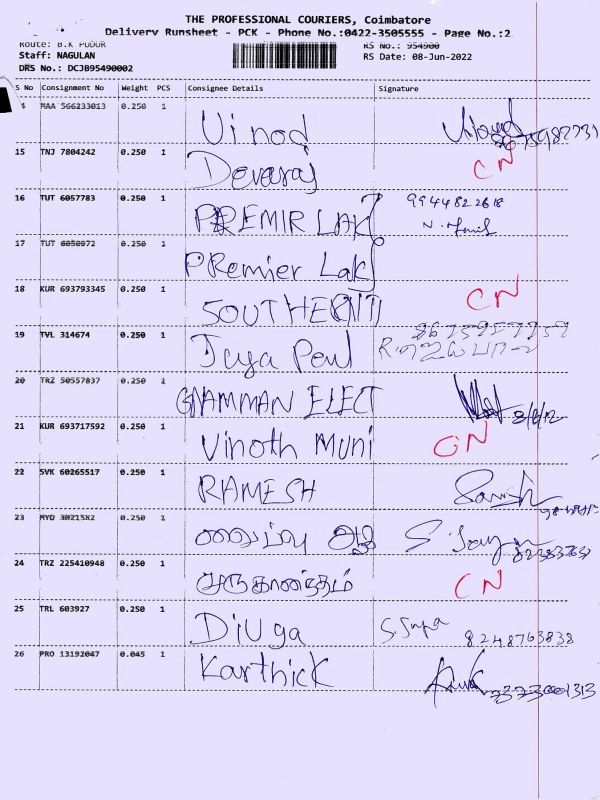 THE PROFESSIONAL COURIERS, Coimbatore
Delivery Runsheet - PCK - Phone No.:0422-3505555 - Page No.:2
Route: B.K PUDUR RS No.: 954900
Staff: NAGULAN RS Date: 08-Jun-2022
DRS No.: DCJB95490002
S No Consignment No Weight PCS Consignee Details Signature
MAA 566233013 0.250 1 Vinod
15 TNJ 7804242 0.250 1 Devaraj CN
16 TUT 6057783 0.250 1 PREMIR LAKJ 9944822618
17 TUT 6050972 0.250 1 PRemier Lakj
18 KUR 693793345 0.250 1 SOUTHERN CN
19 TVL 314674 0.250 1 Jeya Poul
20 TRZ 50557837 0.250 1 GNAMMAN ELECT
21 KUR 693717592 0.250 1 Vinoth Muni CN
22 SVK 60265517 0.250 1 RAMESH
23 0.250 1
24 TRZ 225410948 0.250 1 CN
25 TRL 603927 0.250 1 DiUga 8248763838
26 PRO 13192047 0.045 1 Karthick